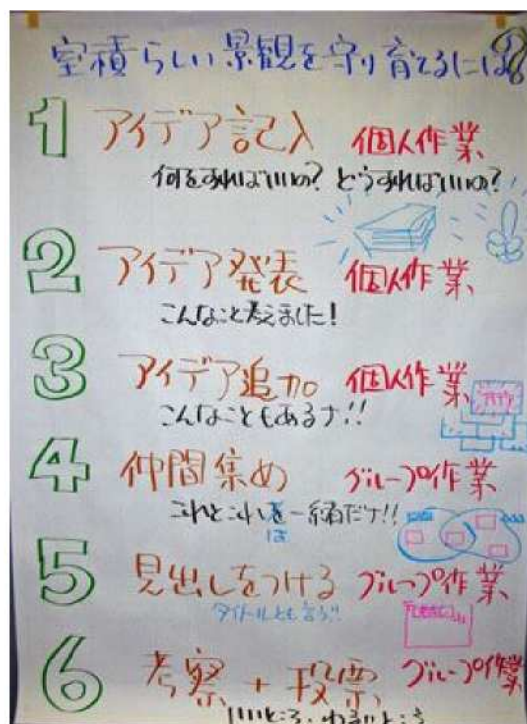 室積らしい景観を守り育てるには?
1 アイデア記入 個人作業
何をすればいいの? どうすればいいの?
2 アイデア発表 個人作業
こんなこと考えました!
3 アイデア追加 個人作業
こんなこともあるナ!!
4 仲間集め グループ作業
これとこれを一緒だナ!!
は
5 見出しをつける グループ作業
タイトルとも言う!!
6 考察+投票 グループ作業
いいところ、わるいところ